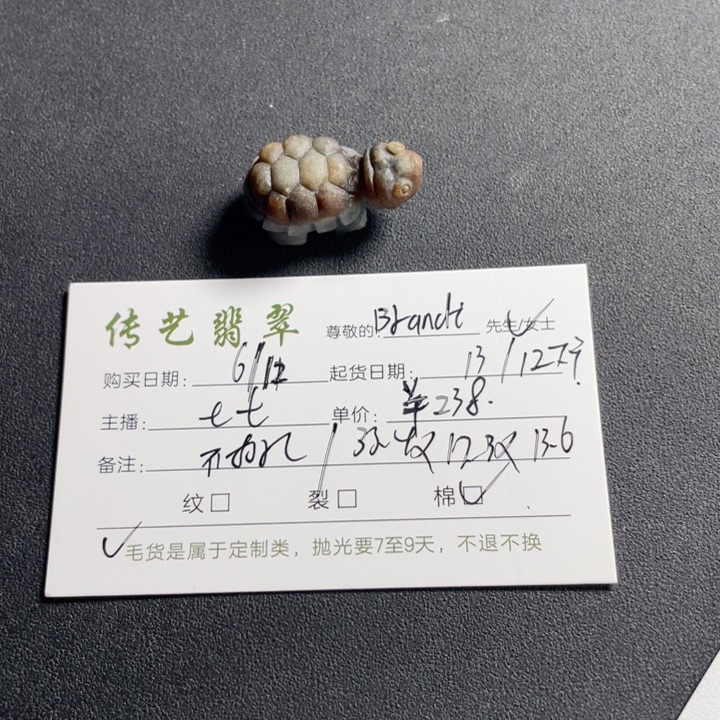 传艺翡翠 尊敬的: Brandt 先生/女士
购买日期: 6/12 起货日期: 13/12
主播: 七七 单价: ¥238.
备注: 不打孔 / 33.4X17.3X13.6
纹□ 裂□ 棉□
毛货是属于定制类，抛光要7至9天，不退不换